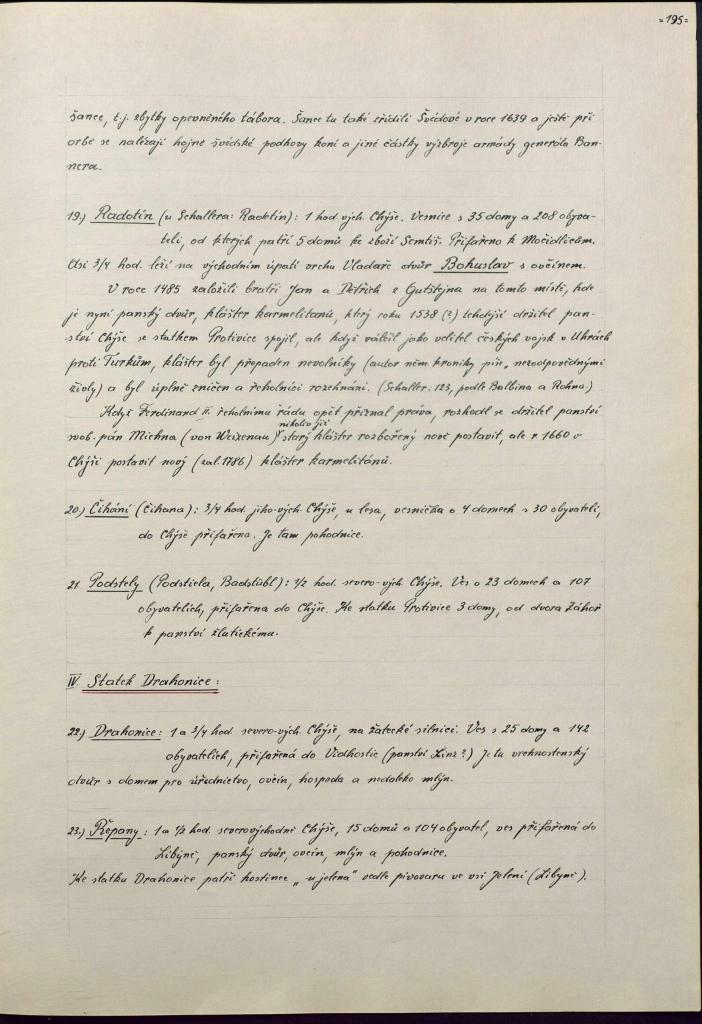 =195=
šance, t.j. zbytky opevněného tábora. Šance tu také zřídili Švédové v roce 1639 a ještě při
orbě se nalézají hojně švédské podkovy koní a jiné částky výzbroje armády generála Ban-
nera.
19.) Radotín (u Schallera: Radětín): 1 hod. vých. Chýše. Vesnice s 35 domy a 208 obyva-
teli, od kterých patří 5 domů ke zboží Semtiš. Přifařeno k Močidlicím.
Asi 3/4 hod. leží na východním úpatí vrchu Vladaře dvůr Bohuslav s ovčínem.
V roce 1485 založili bratři Jan a Dětřich z Gutštejna na tomto místě, kde
je nyní panský dvůr, klášter karmelitánů, který roku 1538 (?) tehdejší držitel pan-
ství Chýše se statkem Protivice spojil, ale když válčil jako velitel českých vojsk v Uhrách
proti Turkům, klášter byl přepaden nevolníky (autor něm. kroniky píše, nezodpovědnými
živly) a byl úplně zničen a řeholníci rozehnáni. (Schaller: 123, podle Balbína a Rohna.)
Když Ferdinand II. řeholnímu řádu opět přiznal práva, rozhodl se držitel panství
svob. pán Michna (von Weizenau) nikoliv již starý klášter rozbořený nově postavit, ale r. 1660 v
Chýši postavit nový (zal. 1786) klášter karmelitánů.
20.) Číhání (Čihana): 3/4 hod. jiho-vých. Chýše, u lesa, vesnička o 4 domech s 30 obyvateli,
do Chýše přifařena. Je tam pohodnice.
21. Podstely (Podstiela, Badstübl): 1/2 hod. severo-vých Chýše. Ves o 23 domech a 107
obyvatelích, přifařena do Chýše. Ke statku Protivice 3 domy, od dvora Záhoř
k panství žlutickému.
IV. Statek Drahonice:
22.) Drahonice: 1 a 3/4 hod. severo-vých. Chýše, na žatecké silnici. Ves s 25 domy a 142
obyvatelích, přifařená do Vidhostic (panství Linz?) Je tu vrchnostenský
dvůr s domem pro úřednictvo, ovčín, hospoda a nedaleko mlýn.
23.) Řepany: 1 a 1/2 hod. severovýchodně Chýše, 15 domů a 104 obyvatel, ves přifařená do
Libyně, panský dvůr, ovčín, mlýn a pohodnice.
Ke statku Drahonice patří hostinec „u jelena" vedle pivovaru ve vsi Jelení (Libyně).